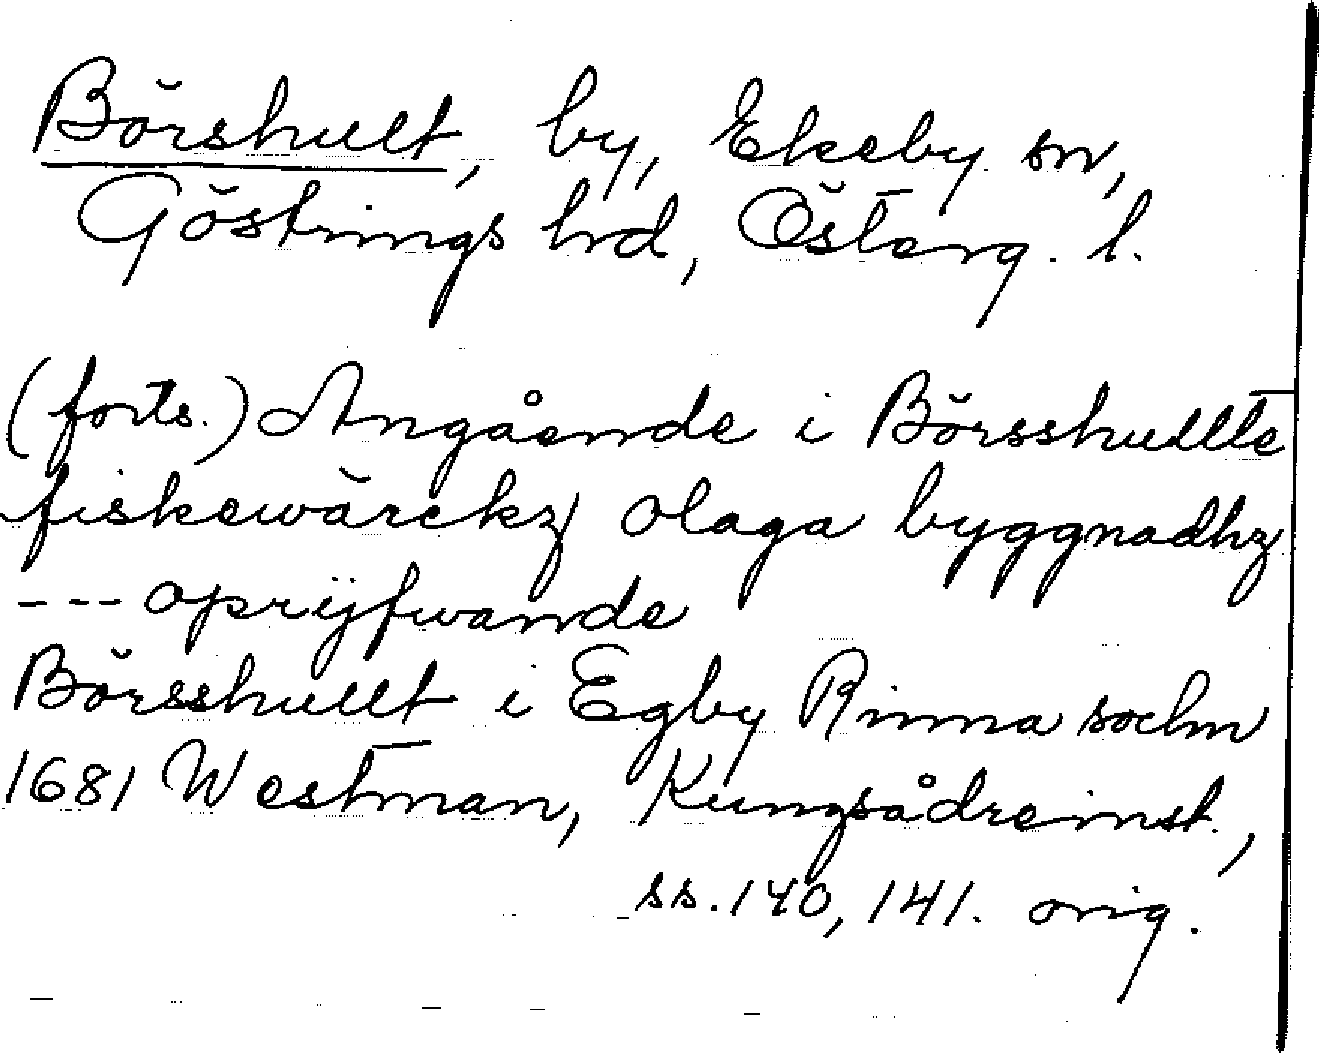 Börshult, by, Ekeby sn,
Göstrings hrd, Österg. l.
(forts.) Angående i Börsshullte
fiskewärckz olaga byggnadhz
--- oprÿfwande
Börsshullt i Egby Rinna sochn
1681 Westman, Kungsådreinst.,
ss. 140, 141. orig.